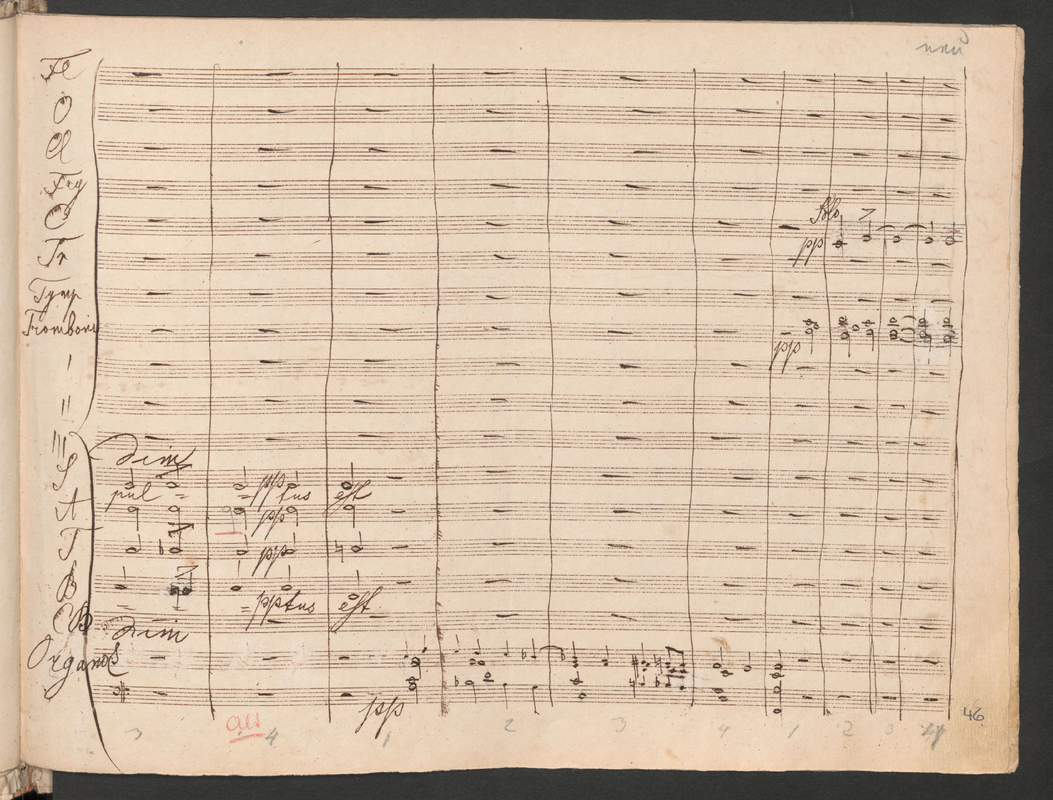 neu
Fl
O
Cl
Fag
C
Tr
Tymp
Tromboni
I
II
III
S
A
T
B
CB
Organo
Solo >
pp
pp
dim
pul = = pp tus est
pp
pp
= pp tus est
dim
pp
aus
3 4 1 2 3 4 1 2 3 4
46